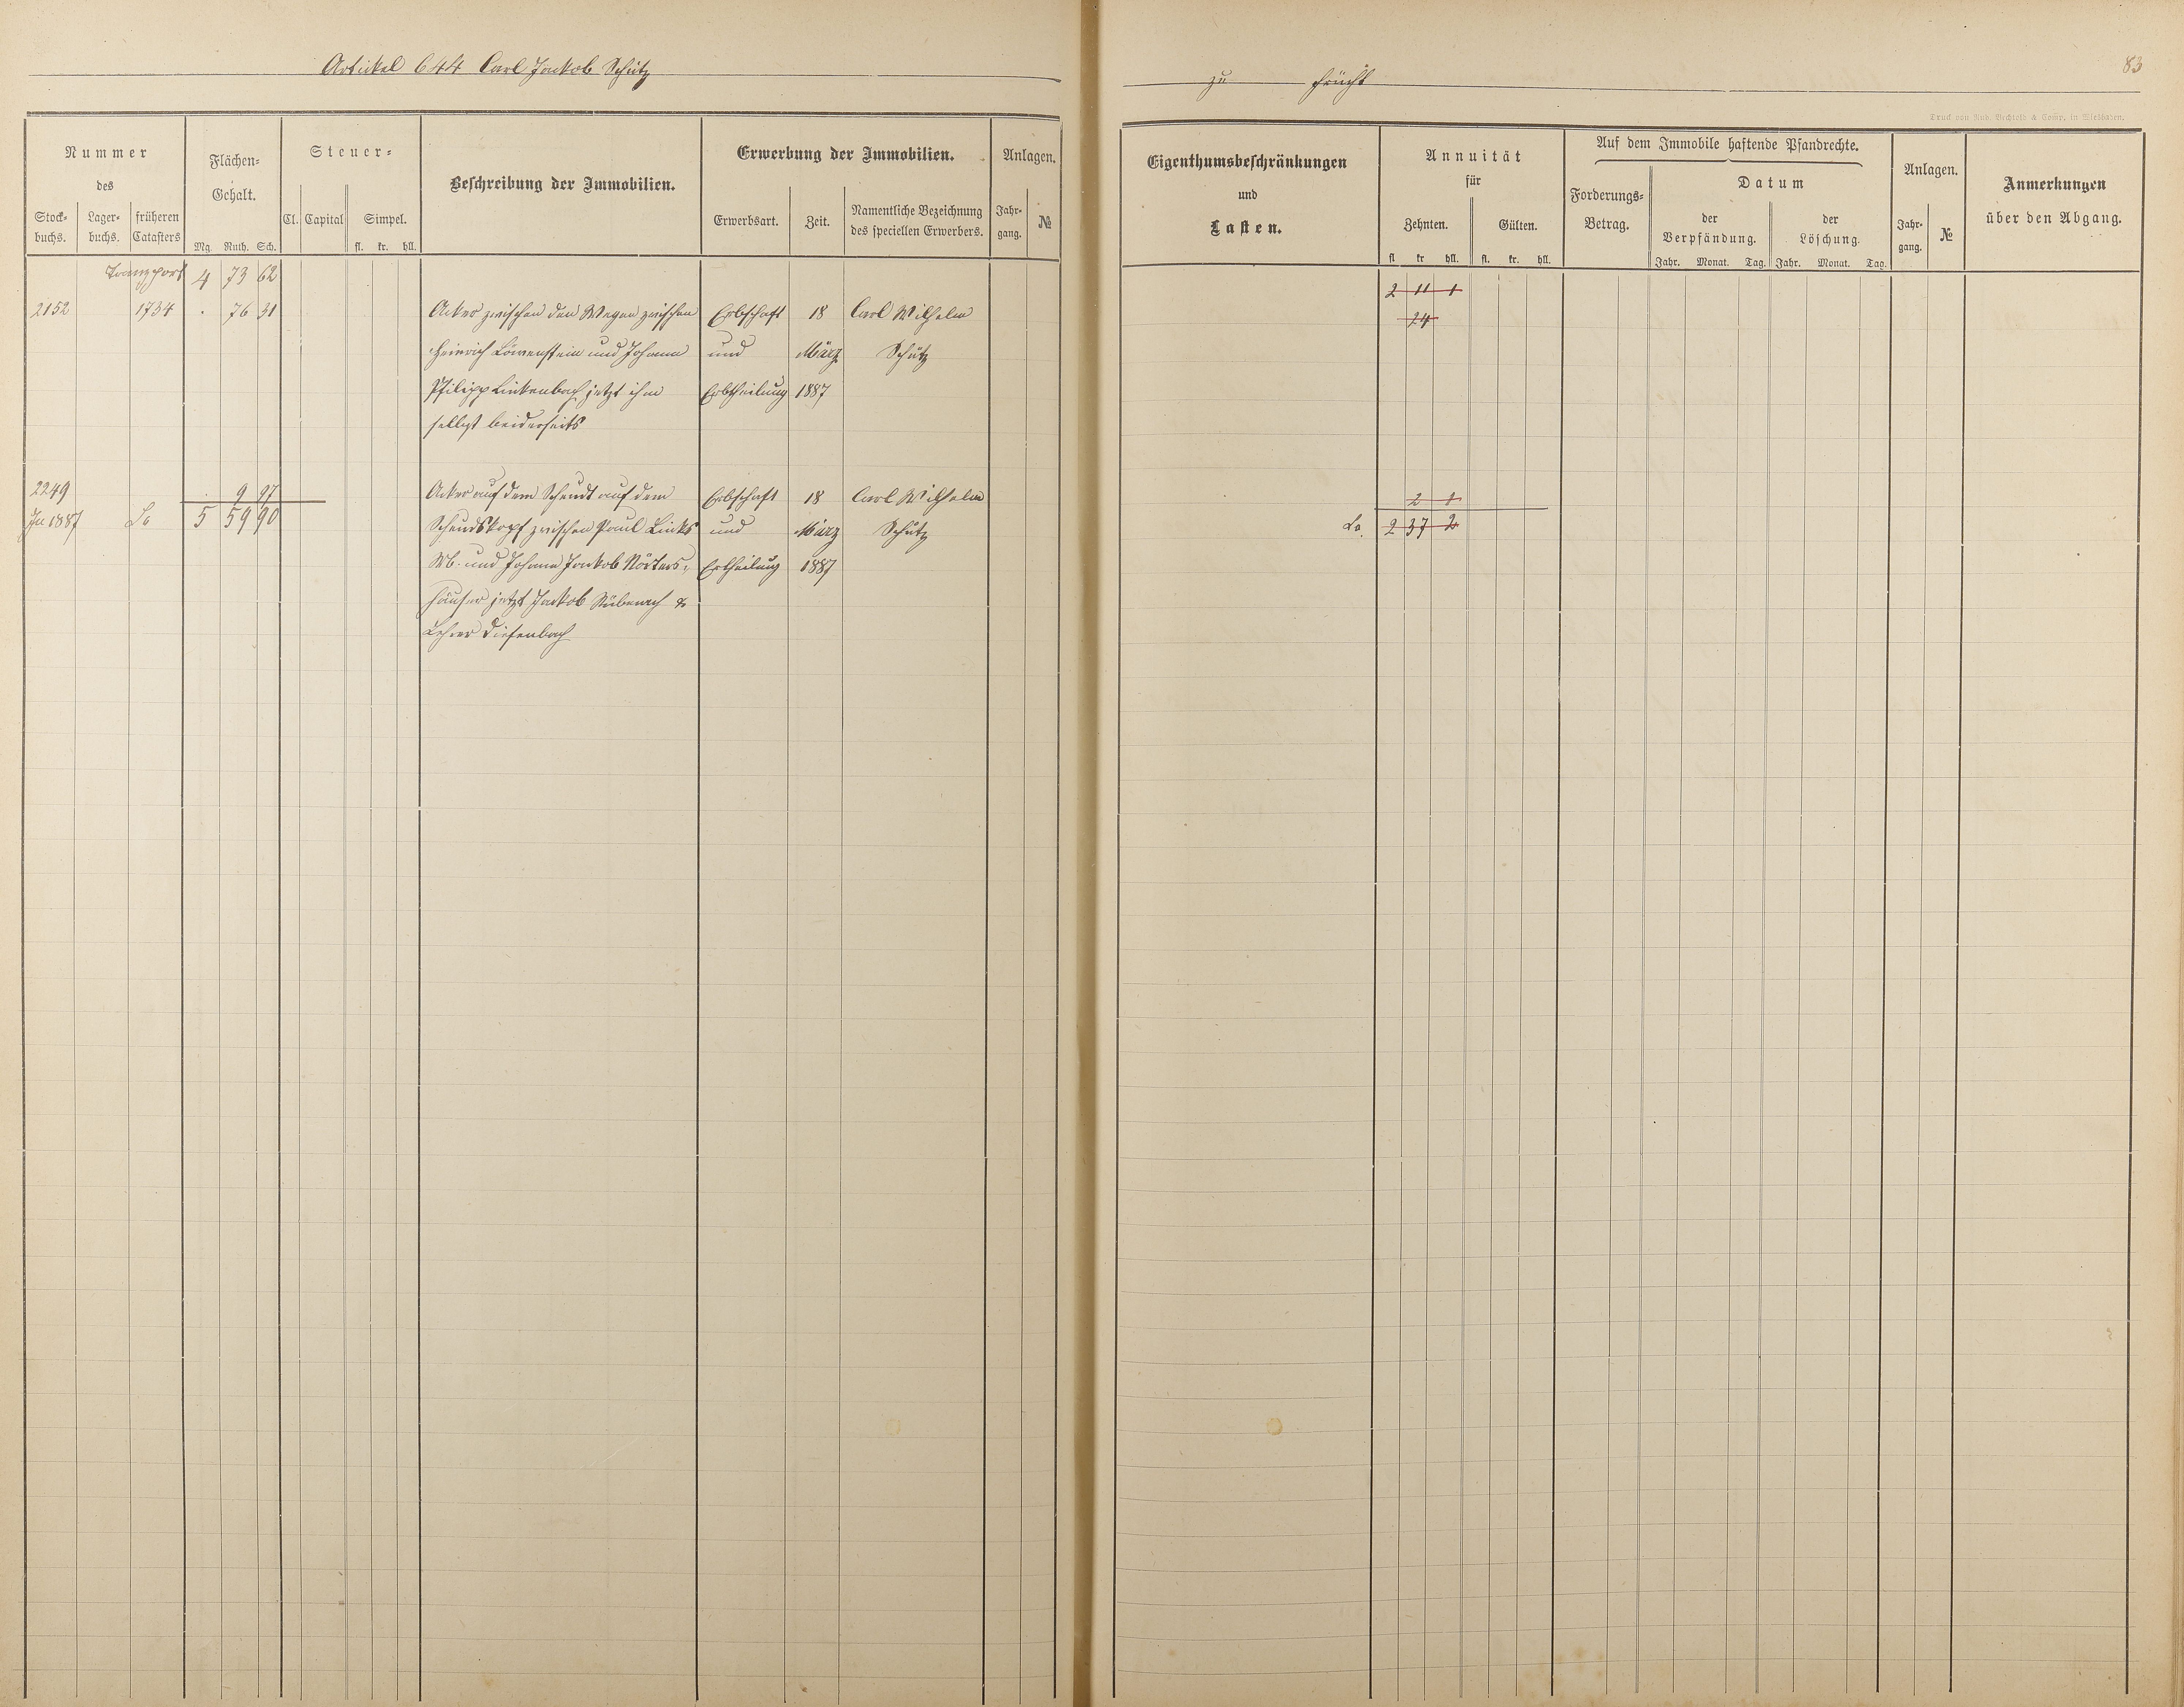 Artickel 644 Carl Jackob Schütz
zu Frücht
83
Druck von Rud. Bechtold & Comp. in Wiesbaden.
Nummer
des
Stock-
buchs.
Lager-
buchs.
früheren
Catasters
Flächen-
Gehalt.
Mg. Ruth. Sch.
Steuer-
Cl. Capital Simpel.
fl. kr. hll.
Beschreibung der Immobilien.
Erwerbung der Immobilien.
Erwerbsart. Zeit.
Namentliche Bezeichnung
des speciellen Erwerbers.
Anlagen.
Jahr-
gang.
№
Eigenthumsbeschränkungen
und
Lasten.
Annuität
für
Zehnten. Gülten.
fl kr hll. fl. kr. hll.
Auf dem Immobile haftende Pfandrechte.
Forderungs-
Betrag.
Datum
der
Verpfändung.
der
Löschung.
Jahr. Monat. Tag. Jahr. Monat. Tag.
Anlagen.
Jahr-
gang.
№
Anmerkungen
über den Abgang.
Transport 4 73 62 2 11 1
2152 1734 . 76 31 Acker zwischen den Wegen zwischen Erbschaft 18 Carl Wilhelm 24
Heinrich Löwenstein und Johann und März Schütz
Philipp Linkenbach jetzt ihm Erbtheilung 1887
selbst beiderseits
2249 . 9 97 Acker auf dem Scheudt auf dem Erbschaft 18 Carl Wilhelm 2 1
In 1887 5 59 90 Scheudskopf zwischen Paul Links und März Schütz 2 37 2
Wb. und Johann Jackob Nörters- Ertheilung 1887
häuser jetzt Jackob Rübenach &
Lehrer Diefenbach